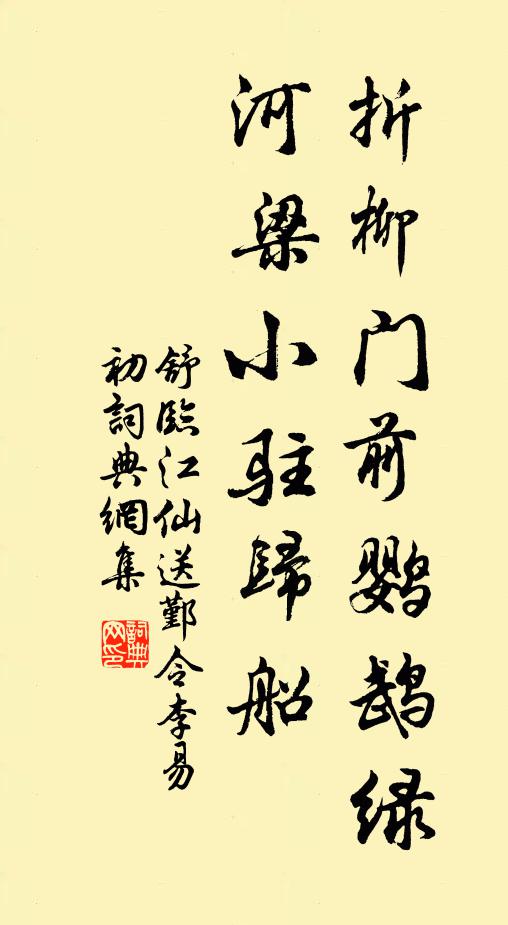 折柳门前鹦鹉绿
河梁小驻歸船
舒臨江仙送鄞令李易
初詞典網集
詞典
网印